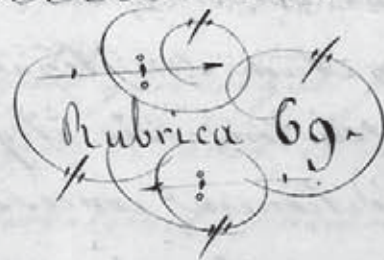 Rubrica 69.